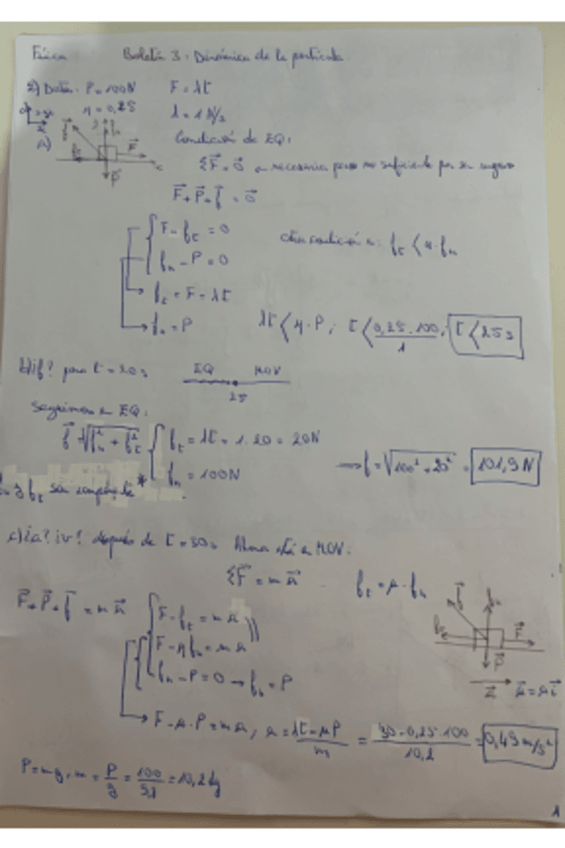 Física Boletín 3: Dinámica de la partícula
2) Datos: P=100N F = λt
μ = 0,25 λ = 1 N/s
a)
Condición de EQ:
ΣF⃗ = 0⃗ → necesaria pero no suficiente por
F⃗ + P⃗ + f⃗ = 0⃗
F - ft = 0
fn - P = 0
Otra condición: ft < μ · fn
ft = F = λt
fn = P
λt < μ · P ; t < 0,25 · 100 / 1 ; t < 25 s
b) ¿f? para t = 20 s EQ MOV
25
Seguimos en EQ:
f⃗ = √(fn² + ft²) ft = λt = 1 · 20 = 20N
fn = 100N
→ f = √(100² + 20²) = 101,9 N
y ft son
c) ¿a? ¿v? después de t = 50s Ahora está en MOV:
ΣF⃗ = m a⃗ ft = μ · fn
F⃗ + P⃗ + f⃗ = m a⃗
F - ft = m a
F - μ fn = m a
fn - P = 0 → fn = P
F - μ · P = m a , a = (λt - μP) / m = (30 - 0,25 · 100) / 10,2 = 0,49 m/s²
P = m g , m = P/g = 100/9,8 = 10,2 kg
1